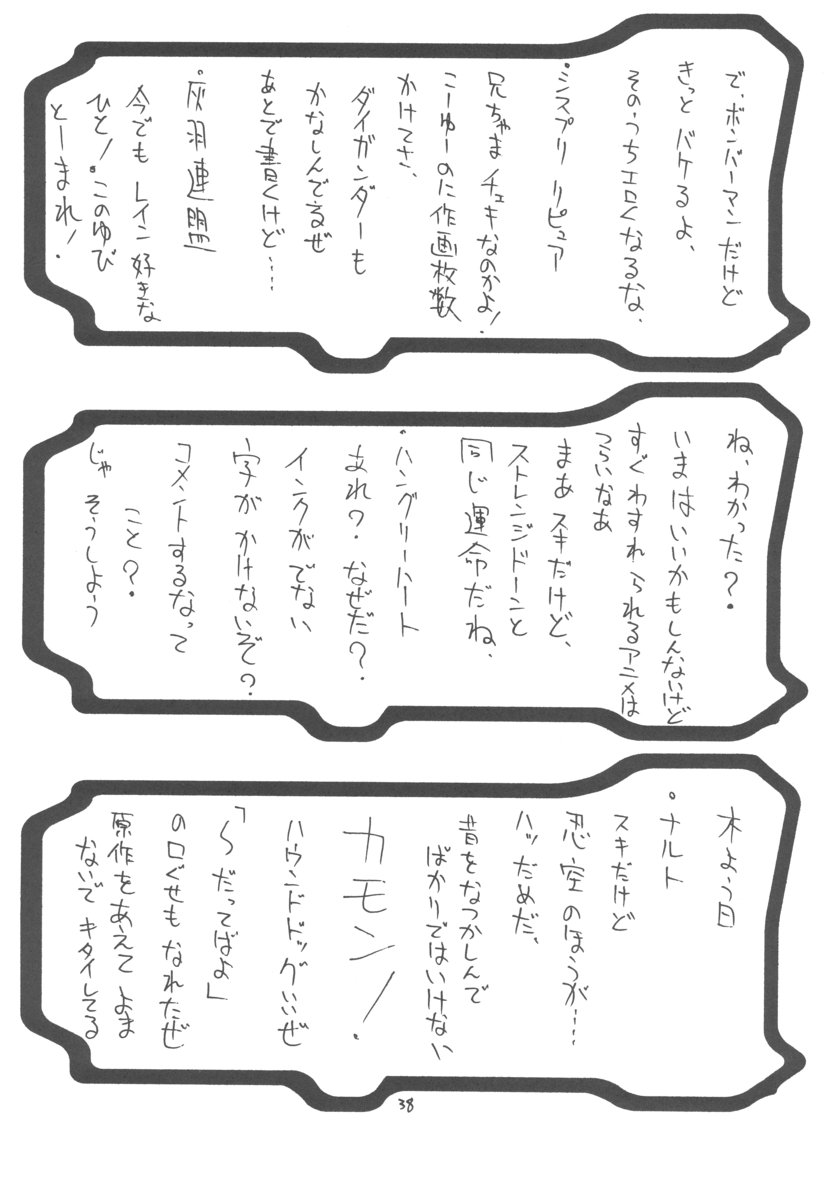 で、ボンバーマンだけど
きっと バケるよ、
そのうちエロくなるな、
・シスプリ リピュア
兄ちゃま チェキなのかよ！
こーゆーのに作画枚数
かけてさ、
ダイガンダーも
かなしんでるぜ
あとで書くけど…
・灰羽連盟
今でも レイン 好きな
ひと！このゆび
とーまれ！
ね、わかった？
いまはいいかもしんないけど
すぐわすれられるアニメは
つらいなあ
まあ スキだけど、
ストレンジドーンと
同じ運命だね、
・ハングリーハート
あれ？なぜだ？
インクがでない
字が かけないぞ？
コメントするなって
こと？
じゃ そうしよう
木よう日
・ナルト
スキだけど
忍空 のほうが…
ハッだめだ、
昔をなつかしんで
ばかりではいけない
カモン！
ハウンドドッグいいぜ
「〜だってばよ」
の口ぐせも なれたぜ
原作をあえて よま
ないで キタイしてる
38